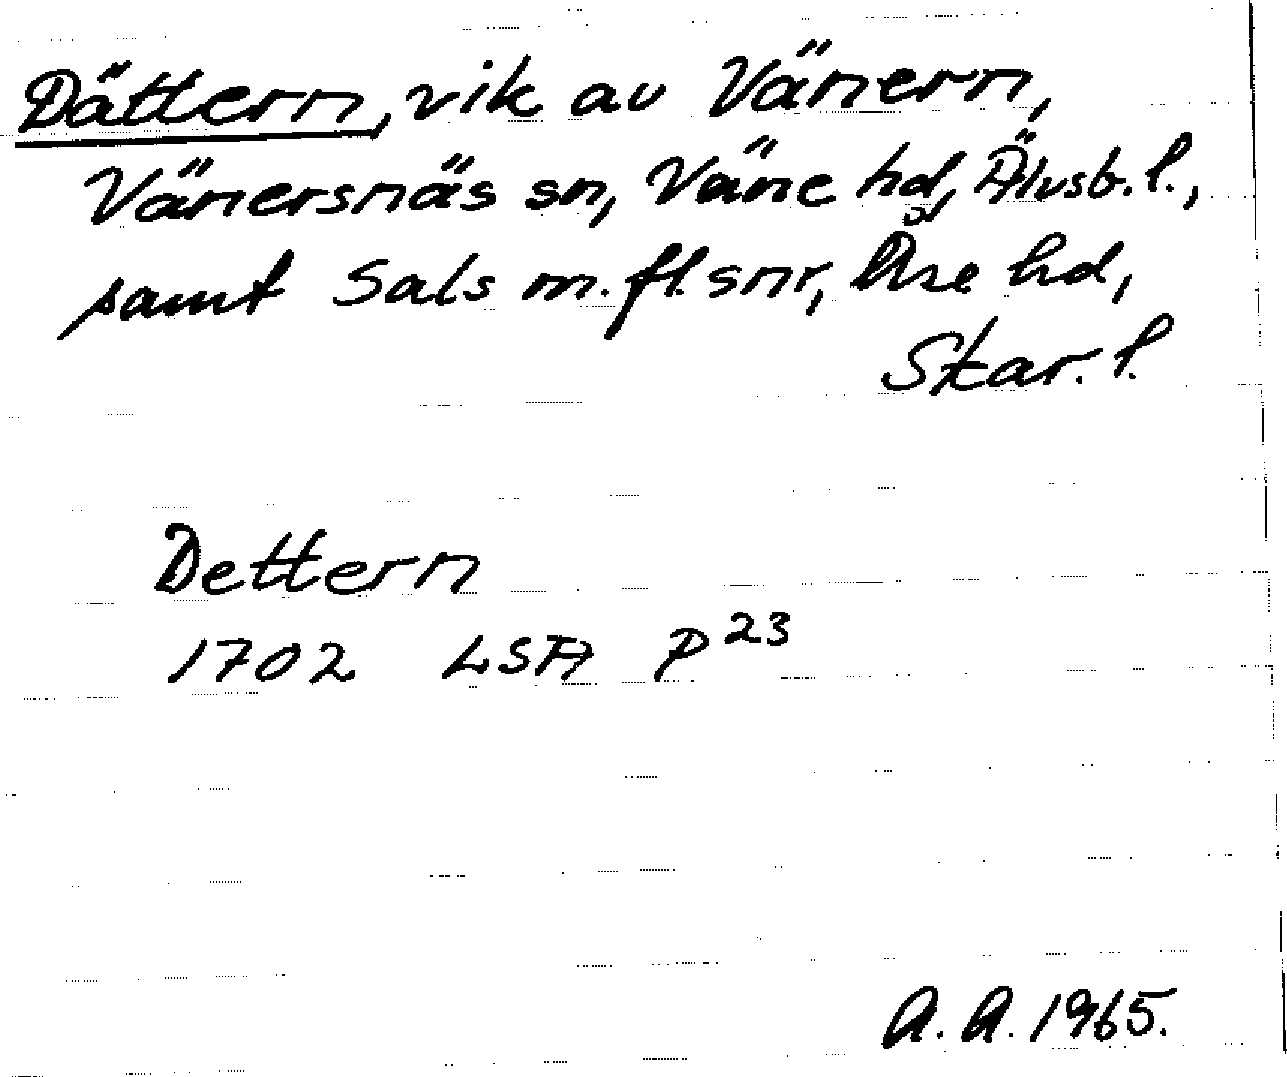 Dättern, vik av Vänern,
Vänersnäs sn, Väne hd, Älvsb. l.,
samt Sals m.fl. snr, Åse hd,
Skar. l.
Dettern
1702 LSA P²³
A.A. 1965.